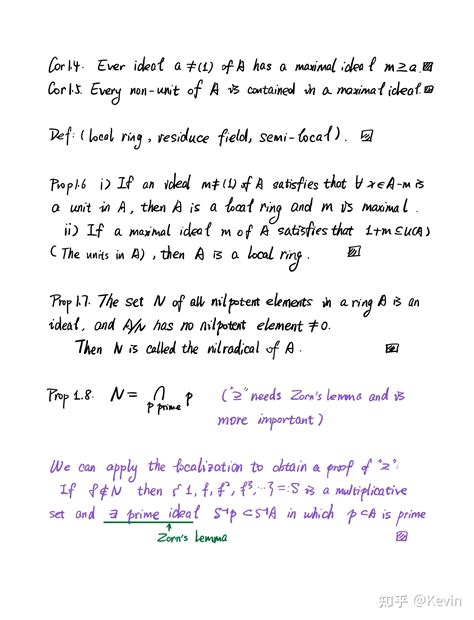 Cor1.4. Ever ideal a ≠(1) of A has a maximal ideal m⊇a. ▨
Cor1.5. Every non-unit of A is contained in a maximal ideal. ▨
Def: (local ring, residuce field, semi-local). ▨
Prop1.6 i) If an ideal m≠(1) of A satisfies that ∀ x∈A-m is
a unit in A, then A is a local ring and m is maximal.
ii) If a maximal ideal m of A satisfies that 1+m⊆U(A)
(The units in A), then A is a local ring. ▨
Prop 1.7. The set N of all nilpotent elements in a ring A is an
ideal, and A/N has no nilpotent element ≠0.
Then N is called the nilradical of A. ▨
Prop 1.8. N = ∩ p ("⊇" needs Zorn's lemma and is
p prime
more important)
We can apply the localization to obtain a proof of "⊇":
If f∉N then {1, f, f², f³, ...} =: S is a multiplicative
set and ∃ prime ideal S⁻¹p ⊂ S⁻¹A in which p⊂A is prime
Zorn's Lemma ▨
知乎 @Kevin